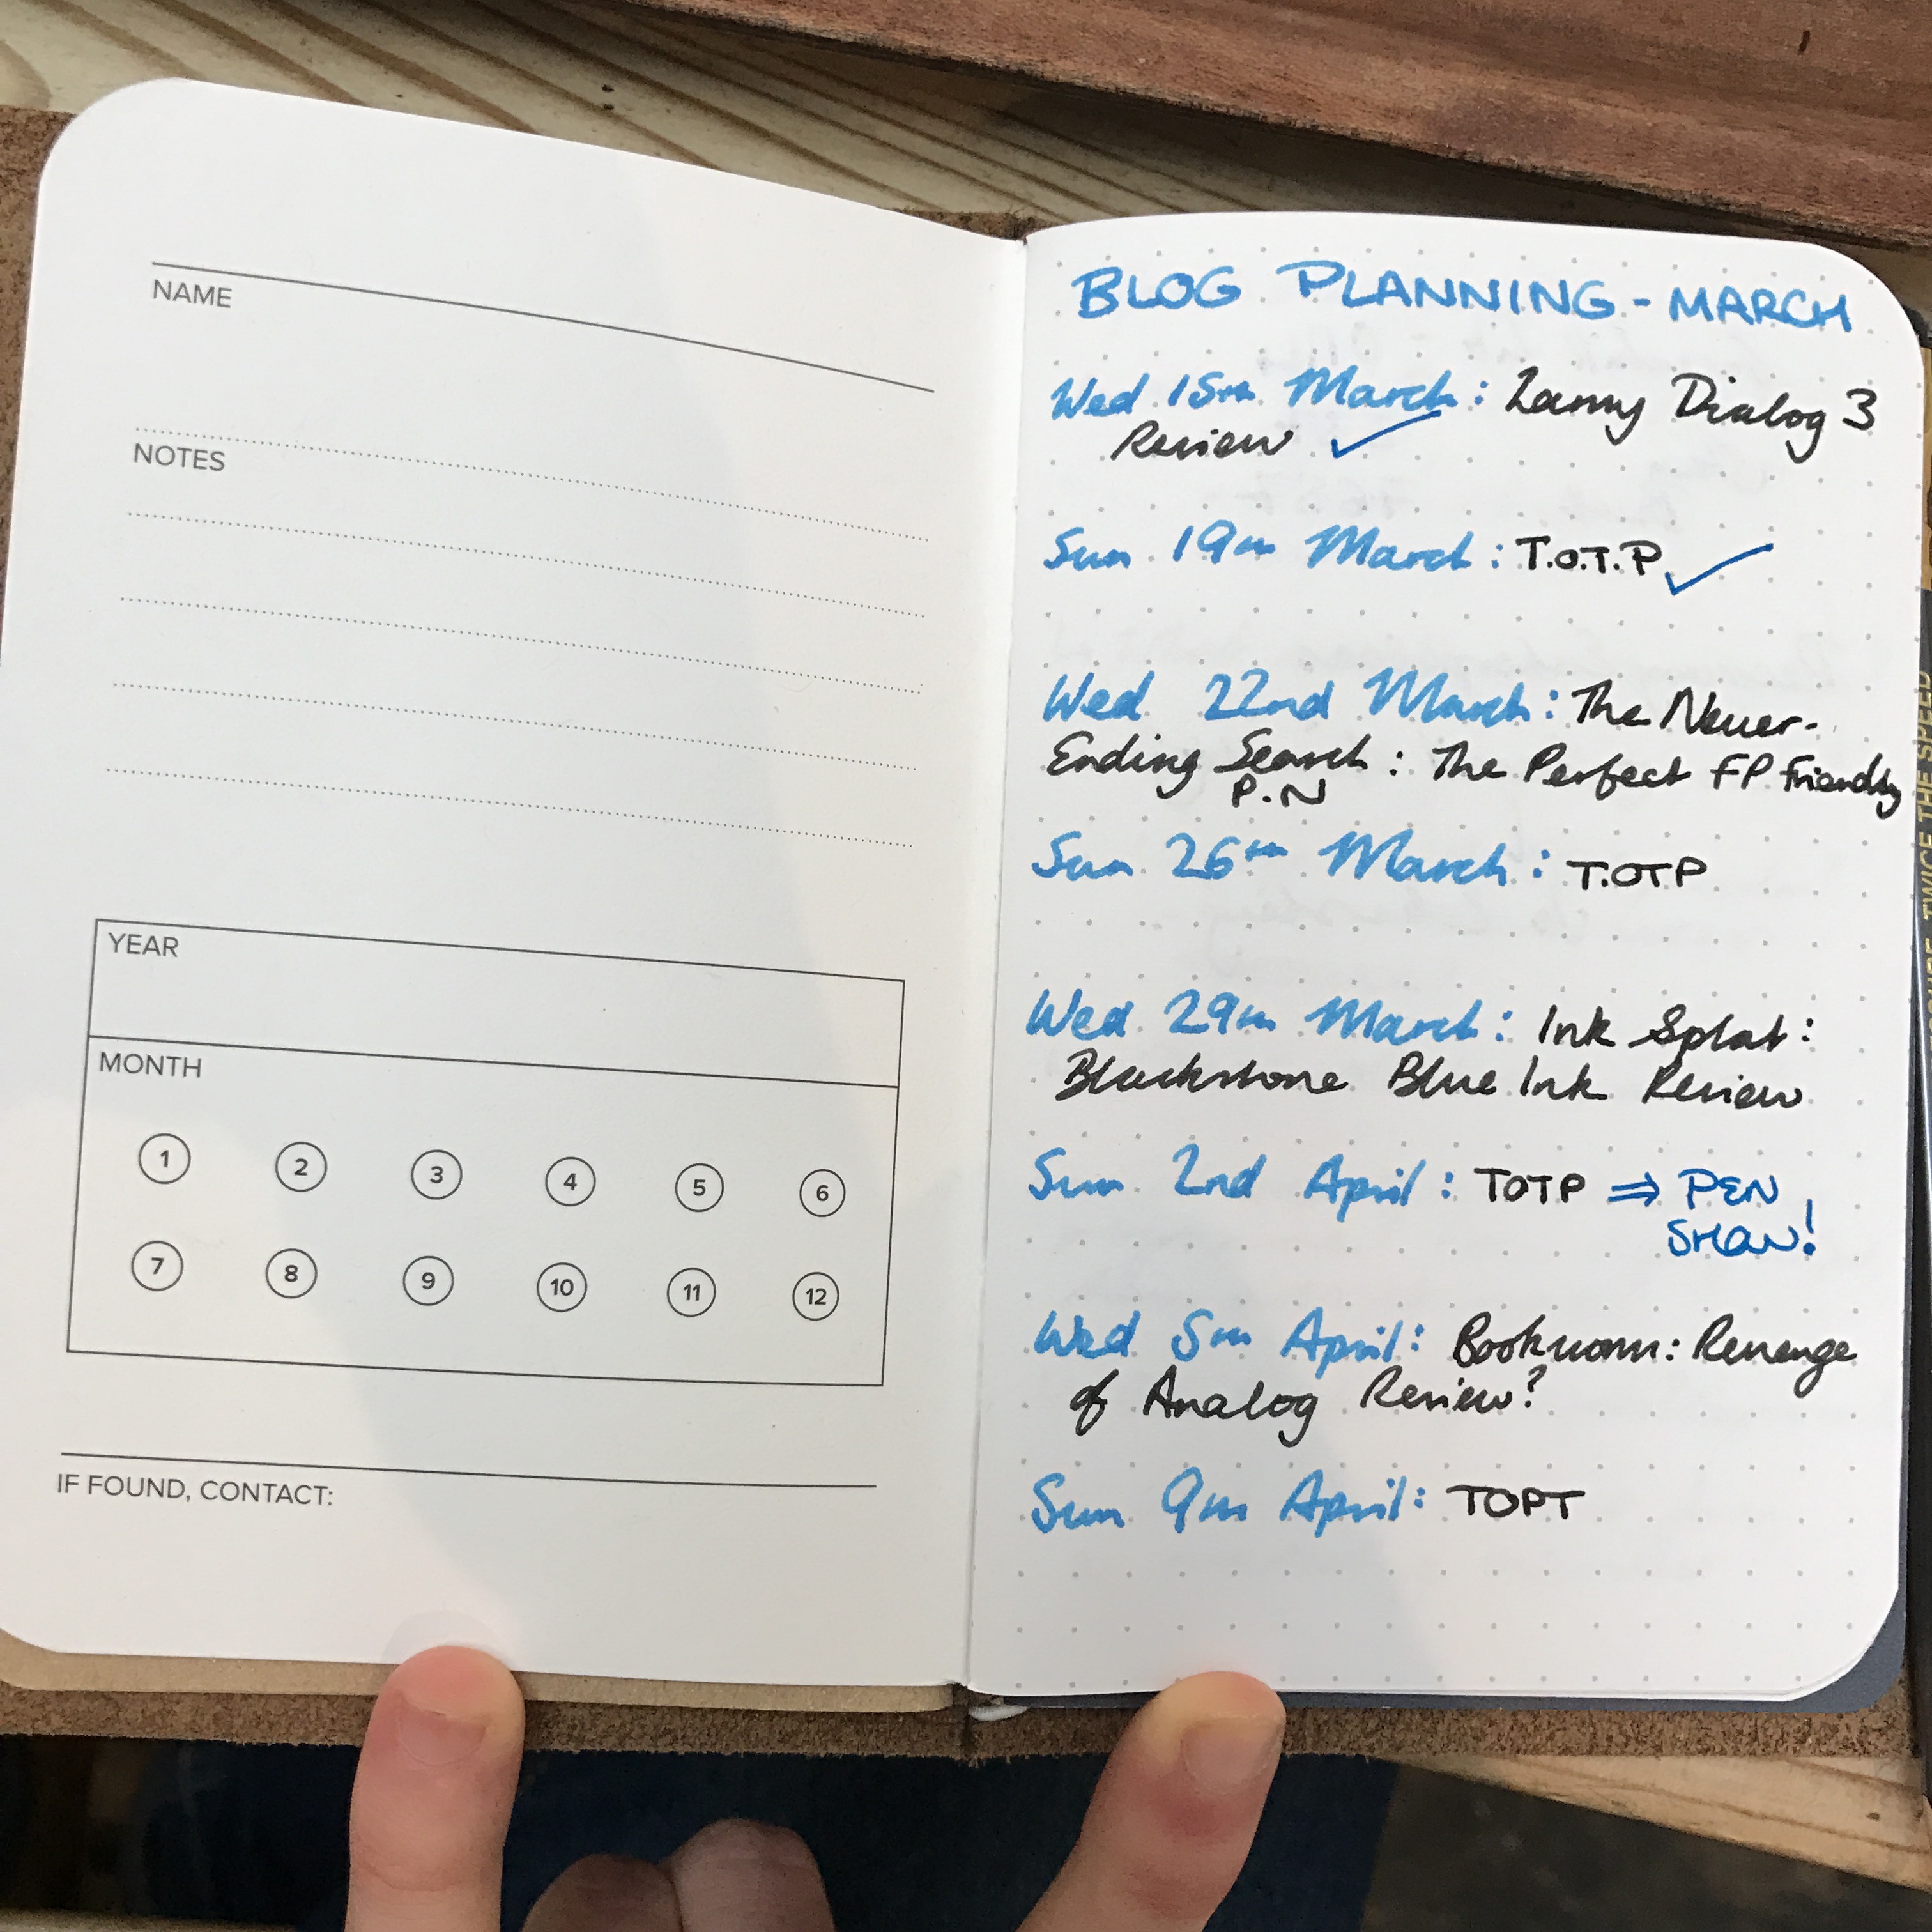 NAME
NOTES
YEAR
MONTH
1 2 3 4 5 6
7 8 9 10 11 12
IF FOUND, CONTACT:
BLOG PLANNING - MARCH
Wed 15th March: Lamy Dialog 3
Review ✓
Sun 19th March: T.O.T.P ✓
Wed 22nd March: The Never-
Ending Search: The Perfect FP Friendly
P.N
Sun 26th March: T.OTP
Wed 29th March: Ink Splat:
Blackstone Blue Ink Review
Sun 2nd April: TOTP ⇒ PEN
SHOW!
Wed 5th April: Bookworm: Revenge
of Analog Review?
Sun 9th April: TOPT
TWICE THE SPEED